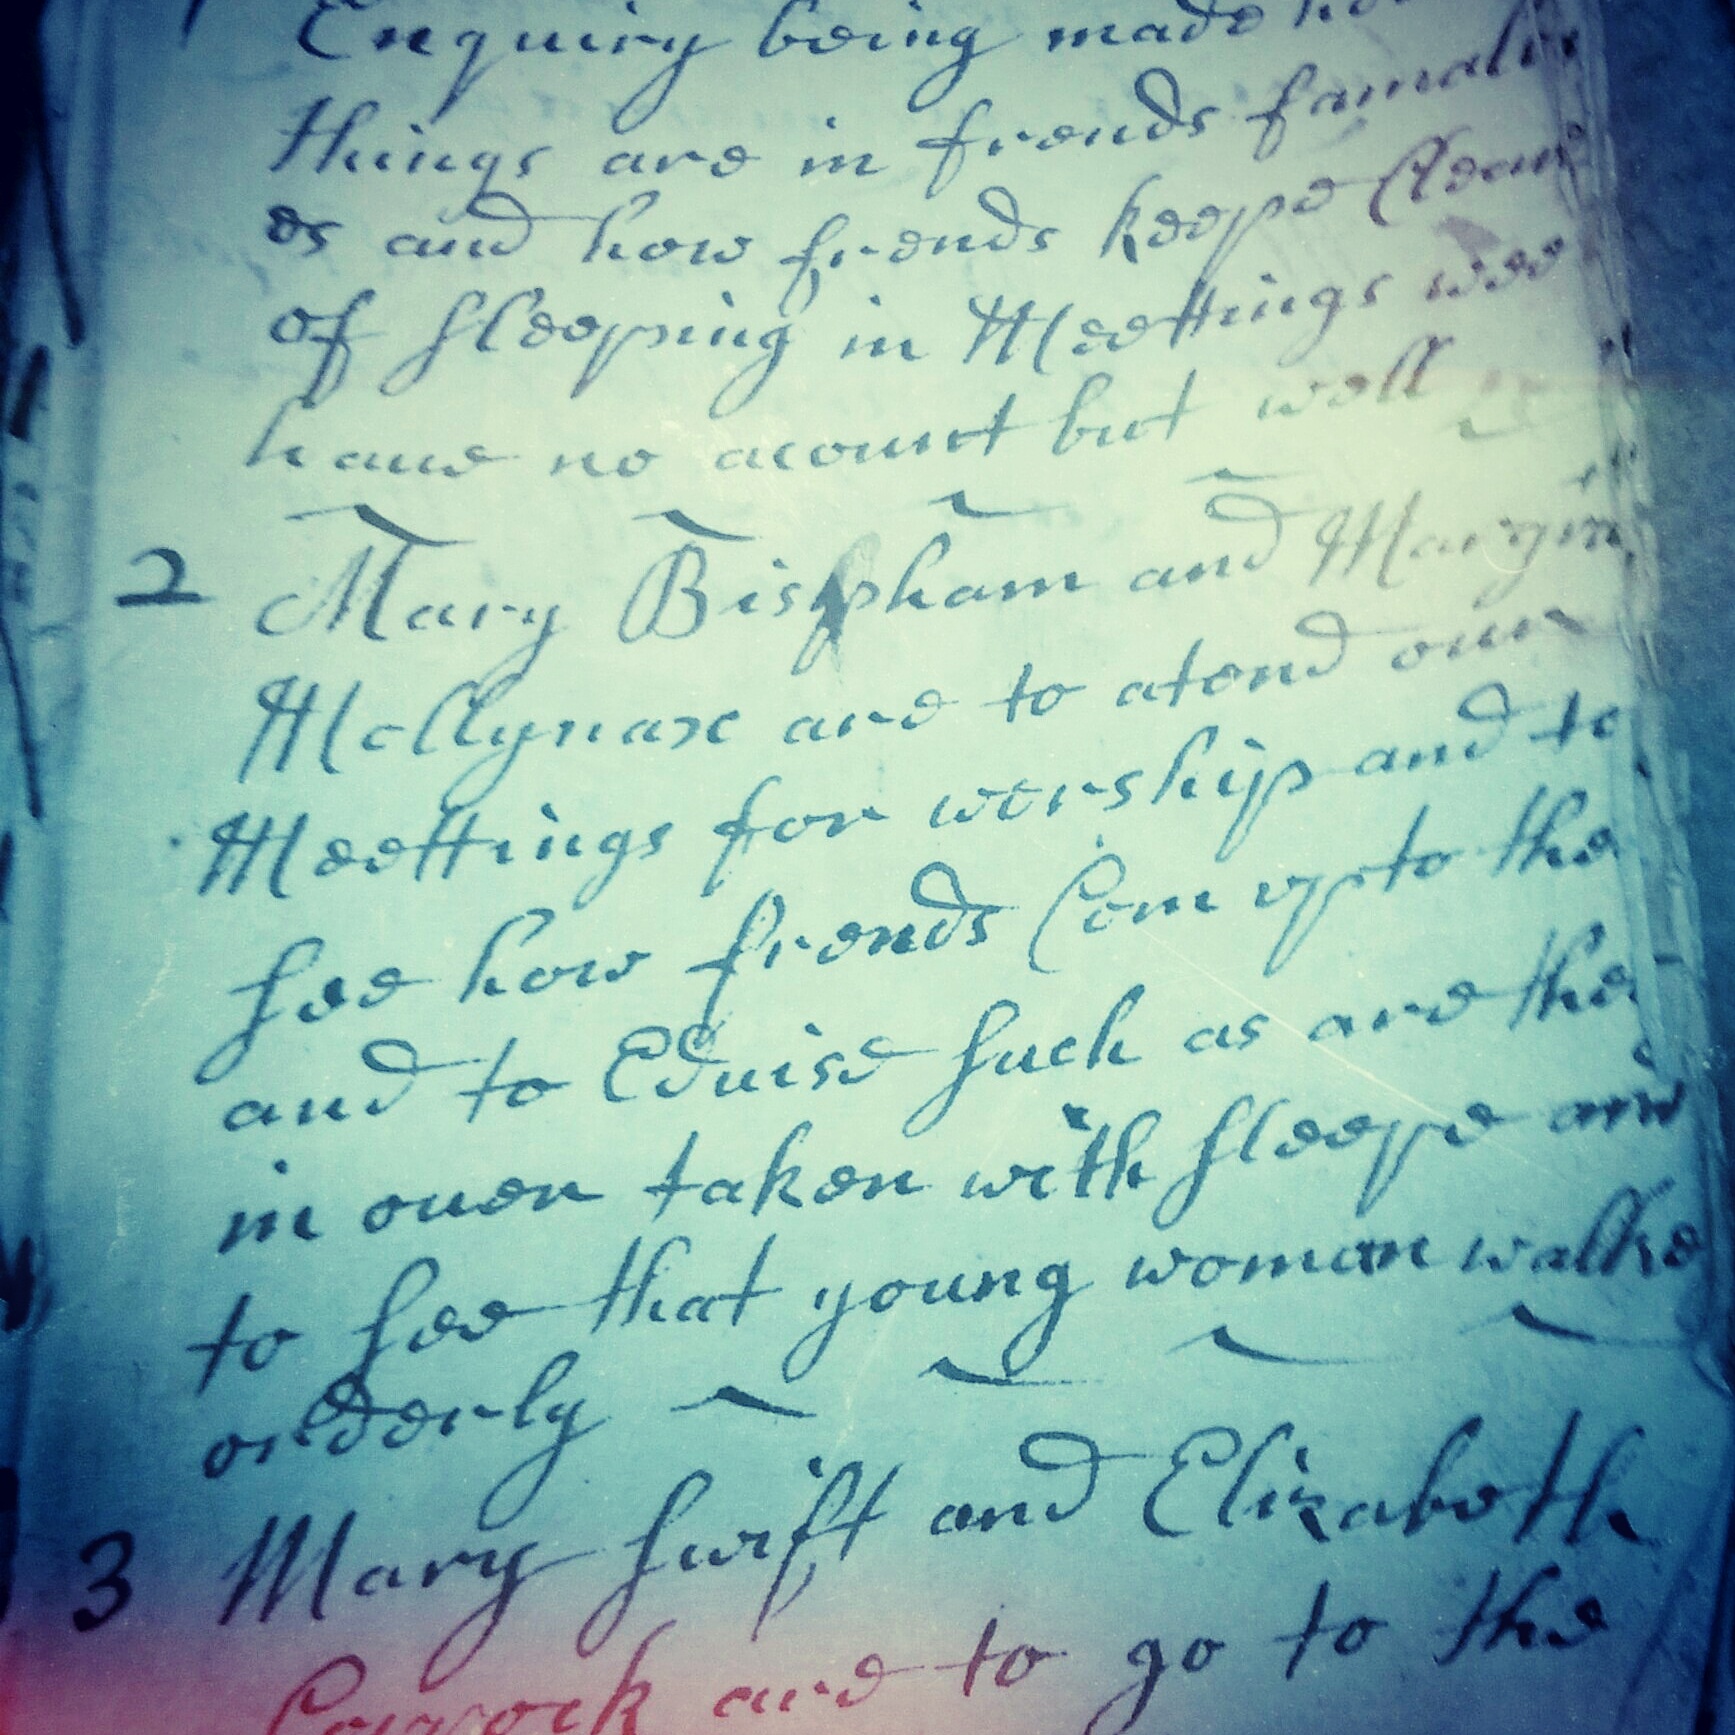 Enquiry being made
things are in frends famali
es and how frends keepe Clear
of sleeping in Meettings wee
haue no acount but well
2 Mary Bispham and
Mollynax are to atend our
Meettings for worship and to
see how frends Com vp to the
and to Eduise such as are
in ouer taken with sleepe and
to see that young woman walke
orderly
3 Mary swift and Elizabeth
are to go to the